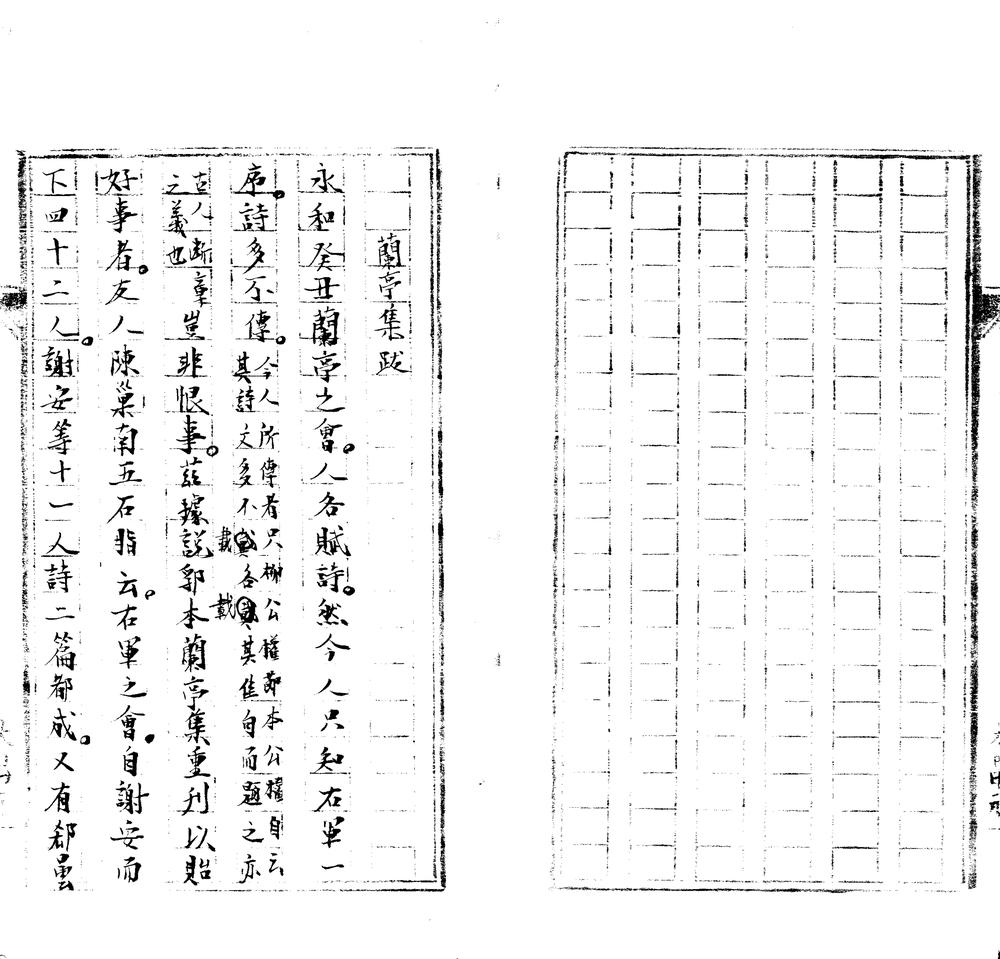 蘭亭集跋
永和癸丑蘭亭之會。人各賦詩。然今人只知右軍一
序。詩多不傳。
今人所傳者只柳公權節本公權自云
其詩文多不載各載其佳句而題之亦
古人斷章
之義也
豈非恨事。茲據說郛本蘭亭集重刋以貽
好事者。友人陳巢南五石脂云。右軍之會。自謝安而
下四十二人。謝安等十一人詩二篇都成。又有郄曇